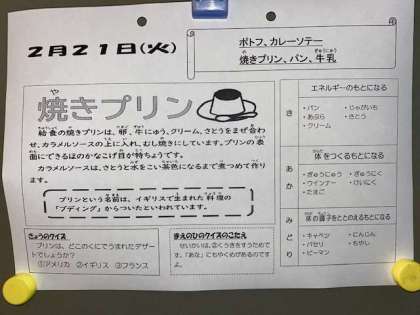 2月21日(火)
ポトフ、カレーソテー
焼きプリン、パン、牛乳
焼きプリン
給食の焼きプリンは、卵、牛にゅう、クリーム、さとうをまぜ合わ
せ、カラメルソースの上に入れ、むし焼きにしています。プリンの表
面にできるほのかなこげ目が特ちょうです。
カラメルソースは、さとうと水をこい茶色になるまで煮つめて作り
ます。
プリンという名前は、イギリスで生まれた料理の
「プディング」からついたといわれています。
きょうのクイズ
プリンは、どこのくにでうまれたデザー
トでしょうか?
①アメリカ ②イギリス ③フランス
まえのひのクイズのこたえ
せいかいは、②くうきをすうためで
す。「あな」にもやくめがあるのですよ。
エネルギーのもとになる
き
・パン ・じゃがいも
・あぶら ・さとう
・クリーム
体をつくるもとになる
あか
・ぎゅうにゅう ・ぎゅうにく
・ウインナー ・けいにく
・たまご
体の調子をととのえるもとになる
みどり
・キャベツ ・にんじん
・パセリ ・もやし
・ピーマン